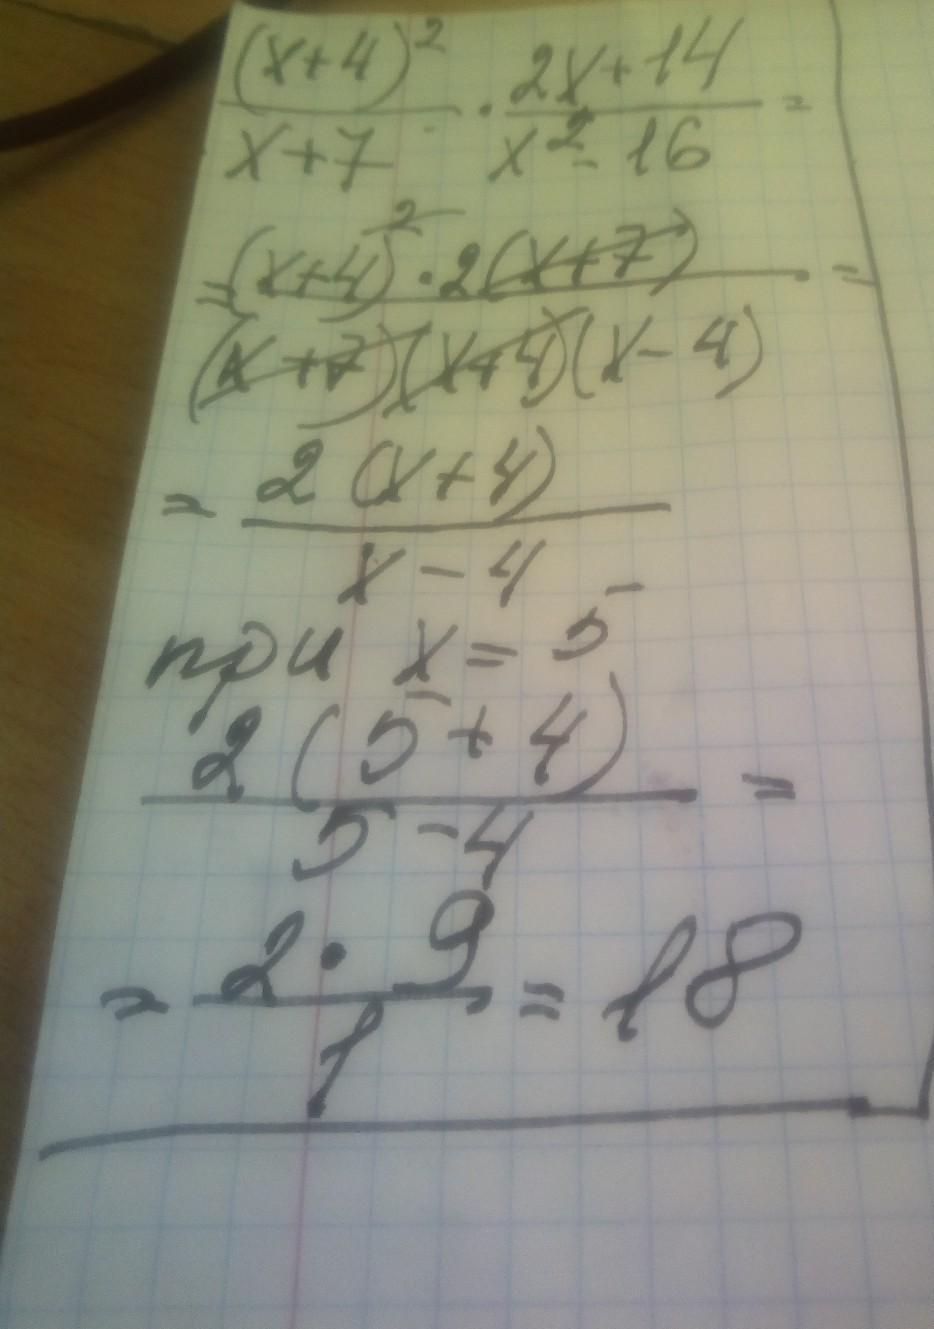 (x+4)²/x+7 · 2x+14/x²-16 =
= (x+4)² · 2(x+7)/(x+7)(x+4)(x-4) =
= 2(x+4)/x-4
при x = 5
2(5+4)/5-4 =
= 2·9/1 = 18